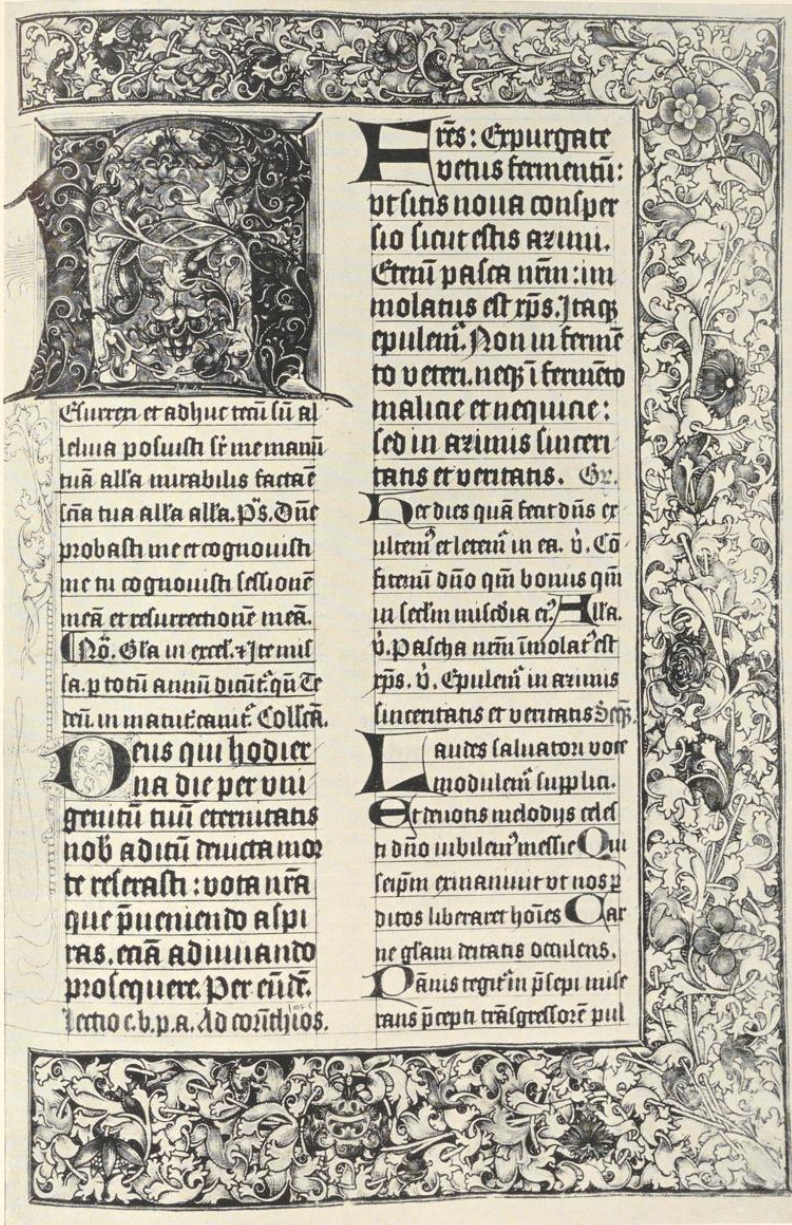 R
Esurrexi et adhuc tecū sū al
leluia posuisti sr̄ me manū
tuā all'a mirabilis facta ē
scīa tua all'a all'a. p̄s. Dn̄e
probasti me et cognouisti
me tu cognouisti sessionē
meā et resurrectionē meā.
Nō. Gl'a in excel'. ⁊ Ite mis
sa. p totū annū dicūt᷑. qn̄ Te
deū. in matut᷑. canit᷑. Coll̄cā.
Deus qui hodier
na die per vni
genitū tuū eternitatis
nob̄ aditū deuicta mor
te reserasti : vota nr̄a
que p̄ueniendo aspi
ras. etiā adiuuando
prosequere. Per eūdē.
Lectio e. b. p. a. Ad corīthios.
Frēs : Expurgate
vetus fermentū :
vt sitis noua consper
sio sicut estis azimi.
Etenī pasca nr̄m : im
molatus est xp̄s. Itaqꝫ
epulem᷑. Non in fermē
to veteri. neqꝫ ī fermēto
malicie et nequicie :
sed in azimis sinceri
tatis et veritatis. Gr.
Hec dies quā fecit dn̄s ex
ultem᷑ et letem᷑ in ea. v̄. Cō
fitemī dn̄o qm̄ bonus qm̄
in secl'm mis̄cdia ei᷑. All'a.
v̄. Pascha nr̄m īmolat᷑ est
xp̄s. v̄. Epulem᷑ in azimis
sinceritatis et veritatis Seqꝫ.
Laudes saluatori voce
modulem᷑ supplici.
Et deuotis melodijs celes
ti dn̄o iubilem᷑ messie Qui
seip̄m exinaniuit vt nos ꝑ
ditos liberaret hoīes Car
ne gl'am deitatis occulens.
Pānis tegit᷑ in p̄sepi mise
rans p̄cepti trāsgressorē pul